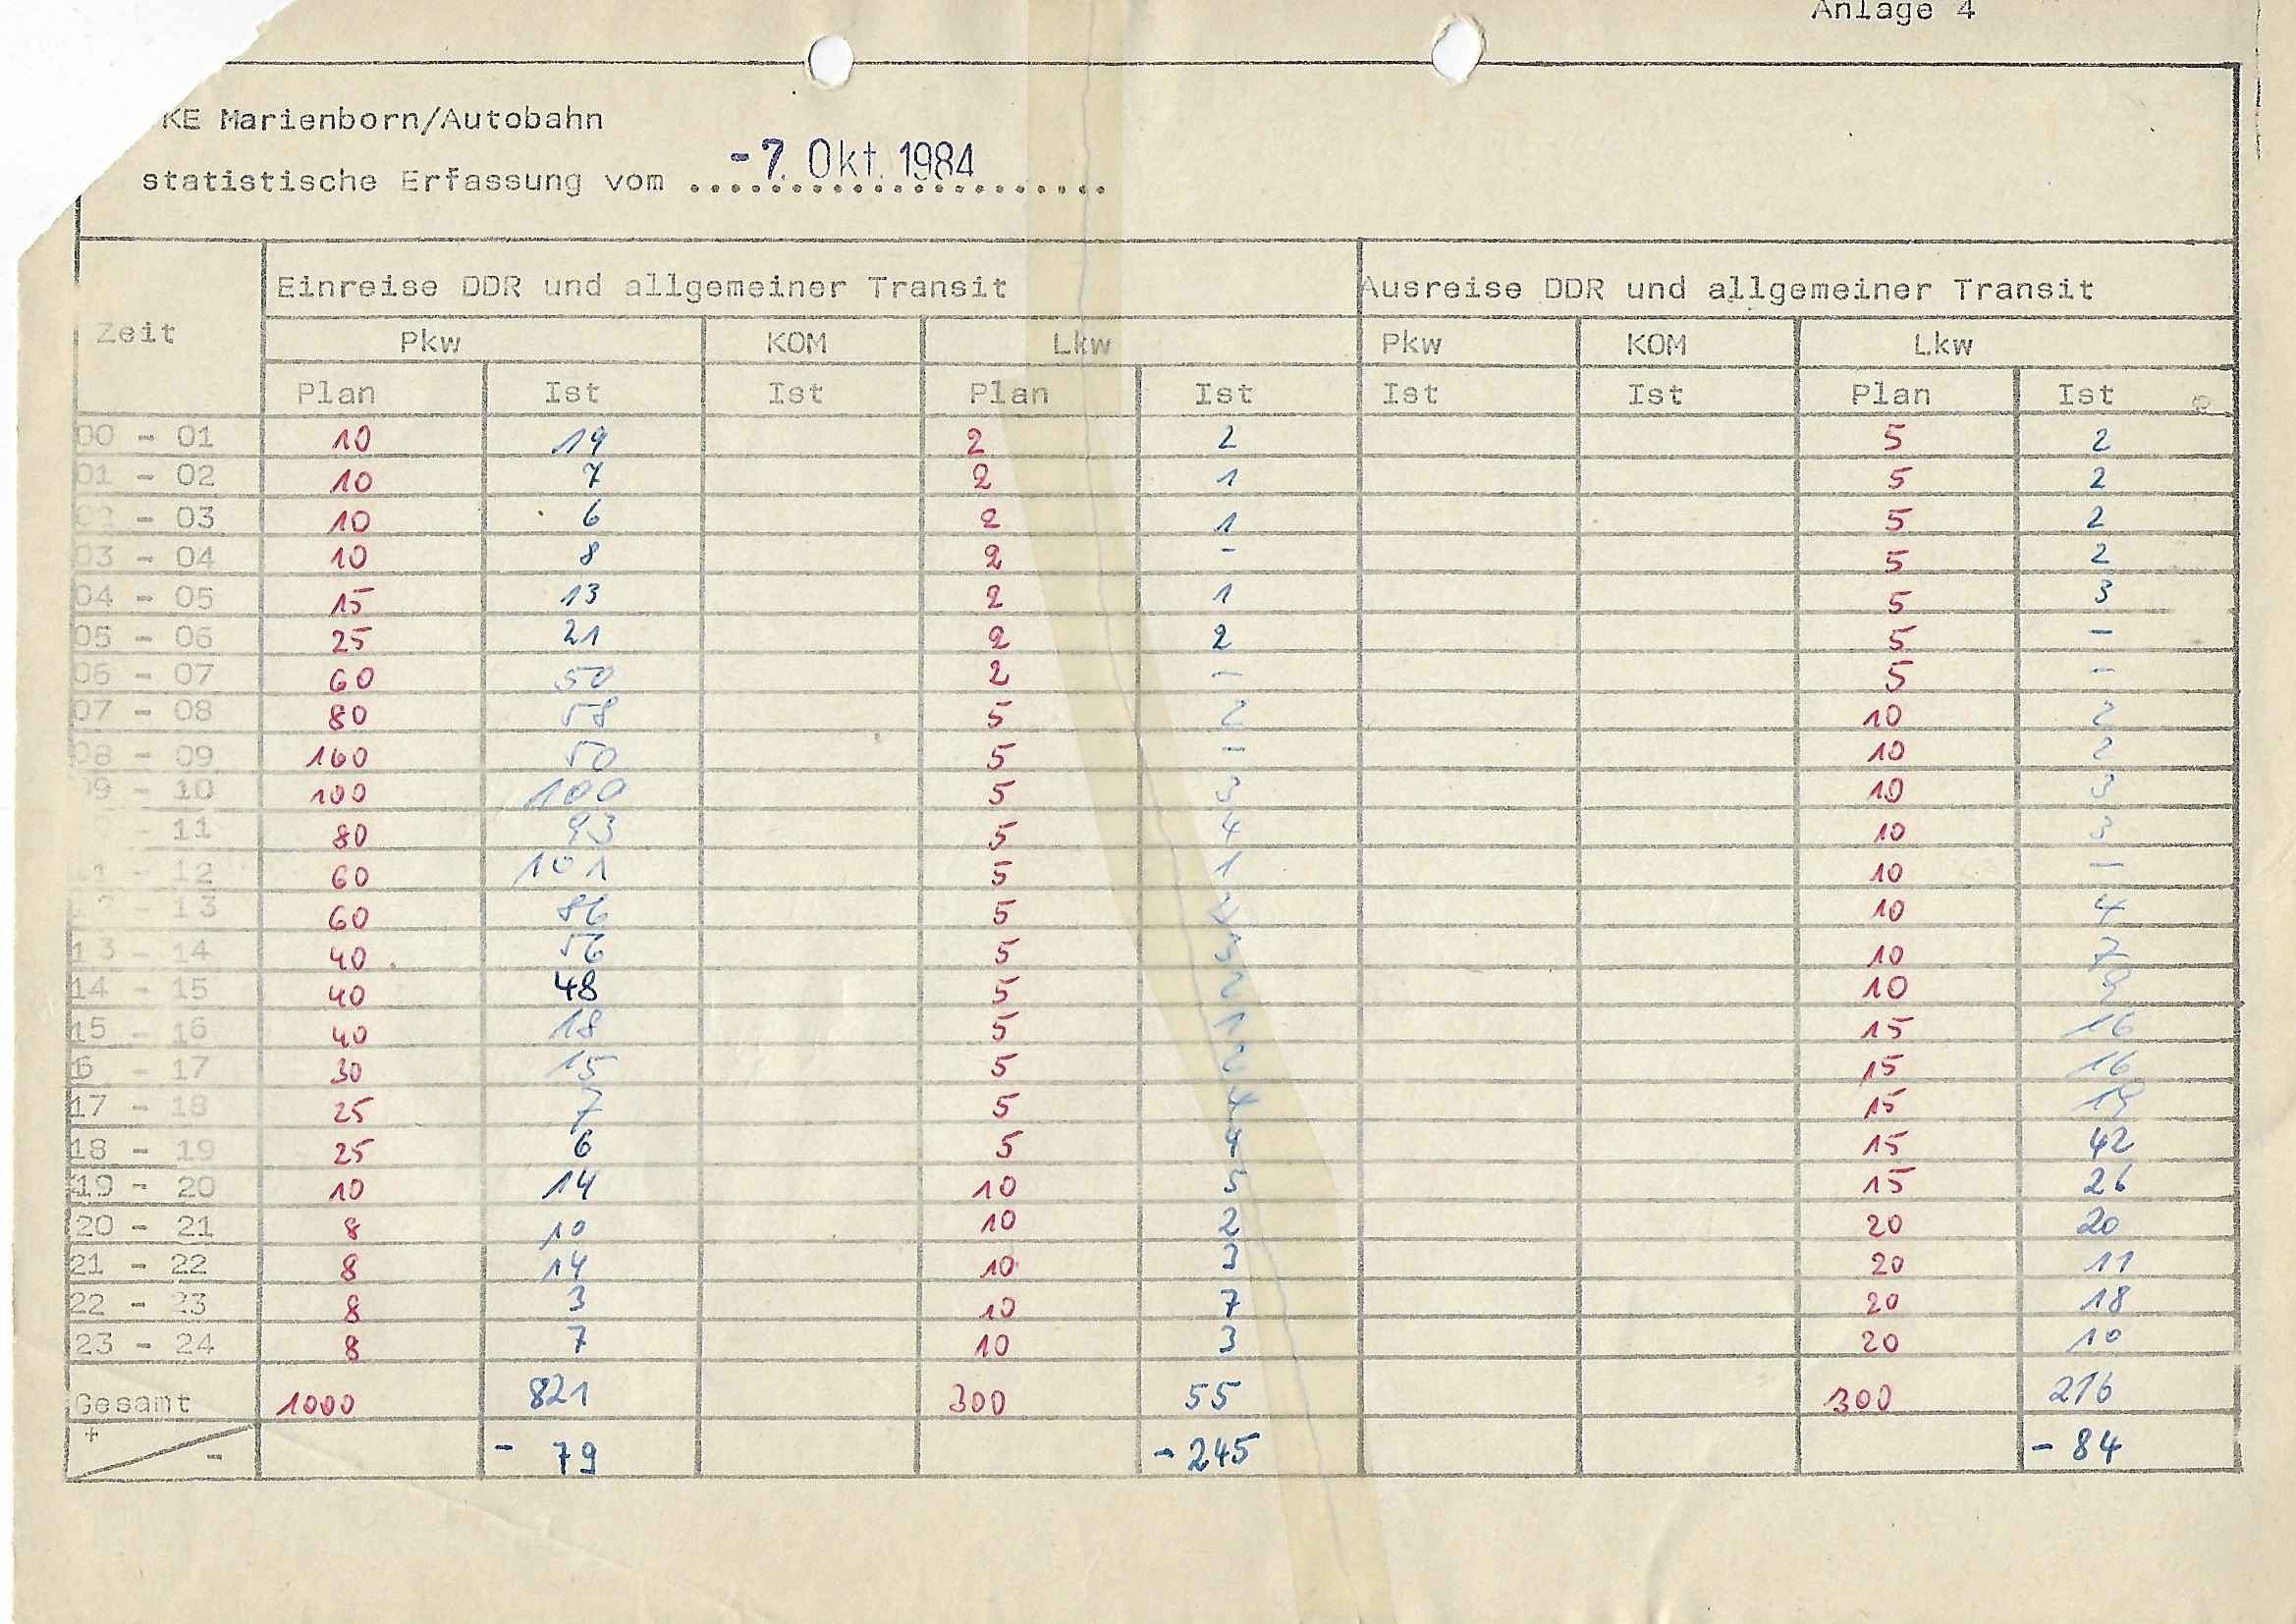 Anlage 4
KE Marienborn/Autobahn
statistische Erfassung vom -7. Okt. 1984
Einreise DDR und allgemeiner Transit Ausreise DDR und allgemeiner Transit
Zeit Pkw KOM Lkw Pkw KOM Lkw
Plan Ist Ist Plan Ist Ist Ist Plan Ist
00 - 01 10 19 2 2 5 2
01 - 02 10 7 2 1 5 2
02 - 03 10 6 2 1 5 2
03 - 04 10 8 2 - 5 2
04 - 05 15 13 2 1 5 3
05 - 06 25 21 2 2 5 -
06 - 07 60 50 2 - 5 -
07 - 08 80 58 5 2 10 2
08 - 09 160 50 5 - 10 2
09 - 10 100 100 5 3 10 3
- 11 80 93 5 4 10 3
11 - 12 60 101 5 1 10 -
12 - 13 60 86 5 10 4
13 - 14 40 56 5 3 10 7
14 - 15 40 48 5 2 10 9
15 - 16 40 18 5 1 15 16
6 - 17 30 15 5 2 15 16
17 - 18 25 7 5 4 15
18 - 19 25 6 5 4 15 42
19 - 20 10 14 10 5 15 26
20 - 21 8 10 10 2 20 20
21 - 22 8 14 10 3 20 11
22 - 23 8 3 10 7 20 18
23 - 24 8 7 10 3 20 10
Gesamt 1000 821 300 55 300 216
+ - - 79 - 245 - 84